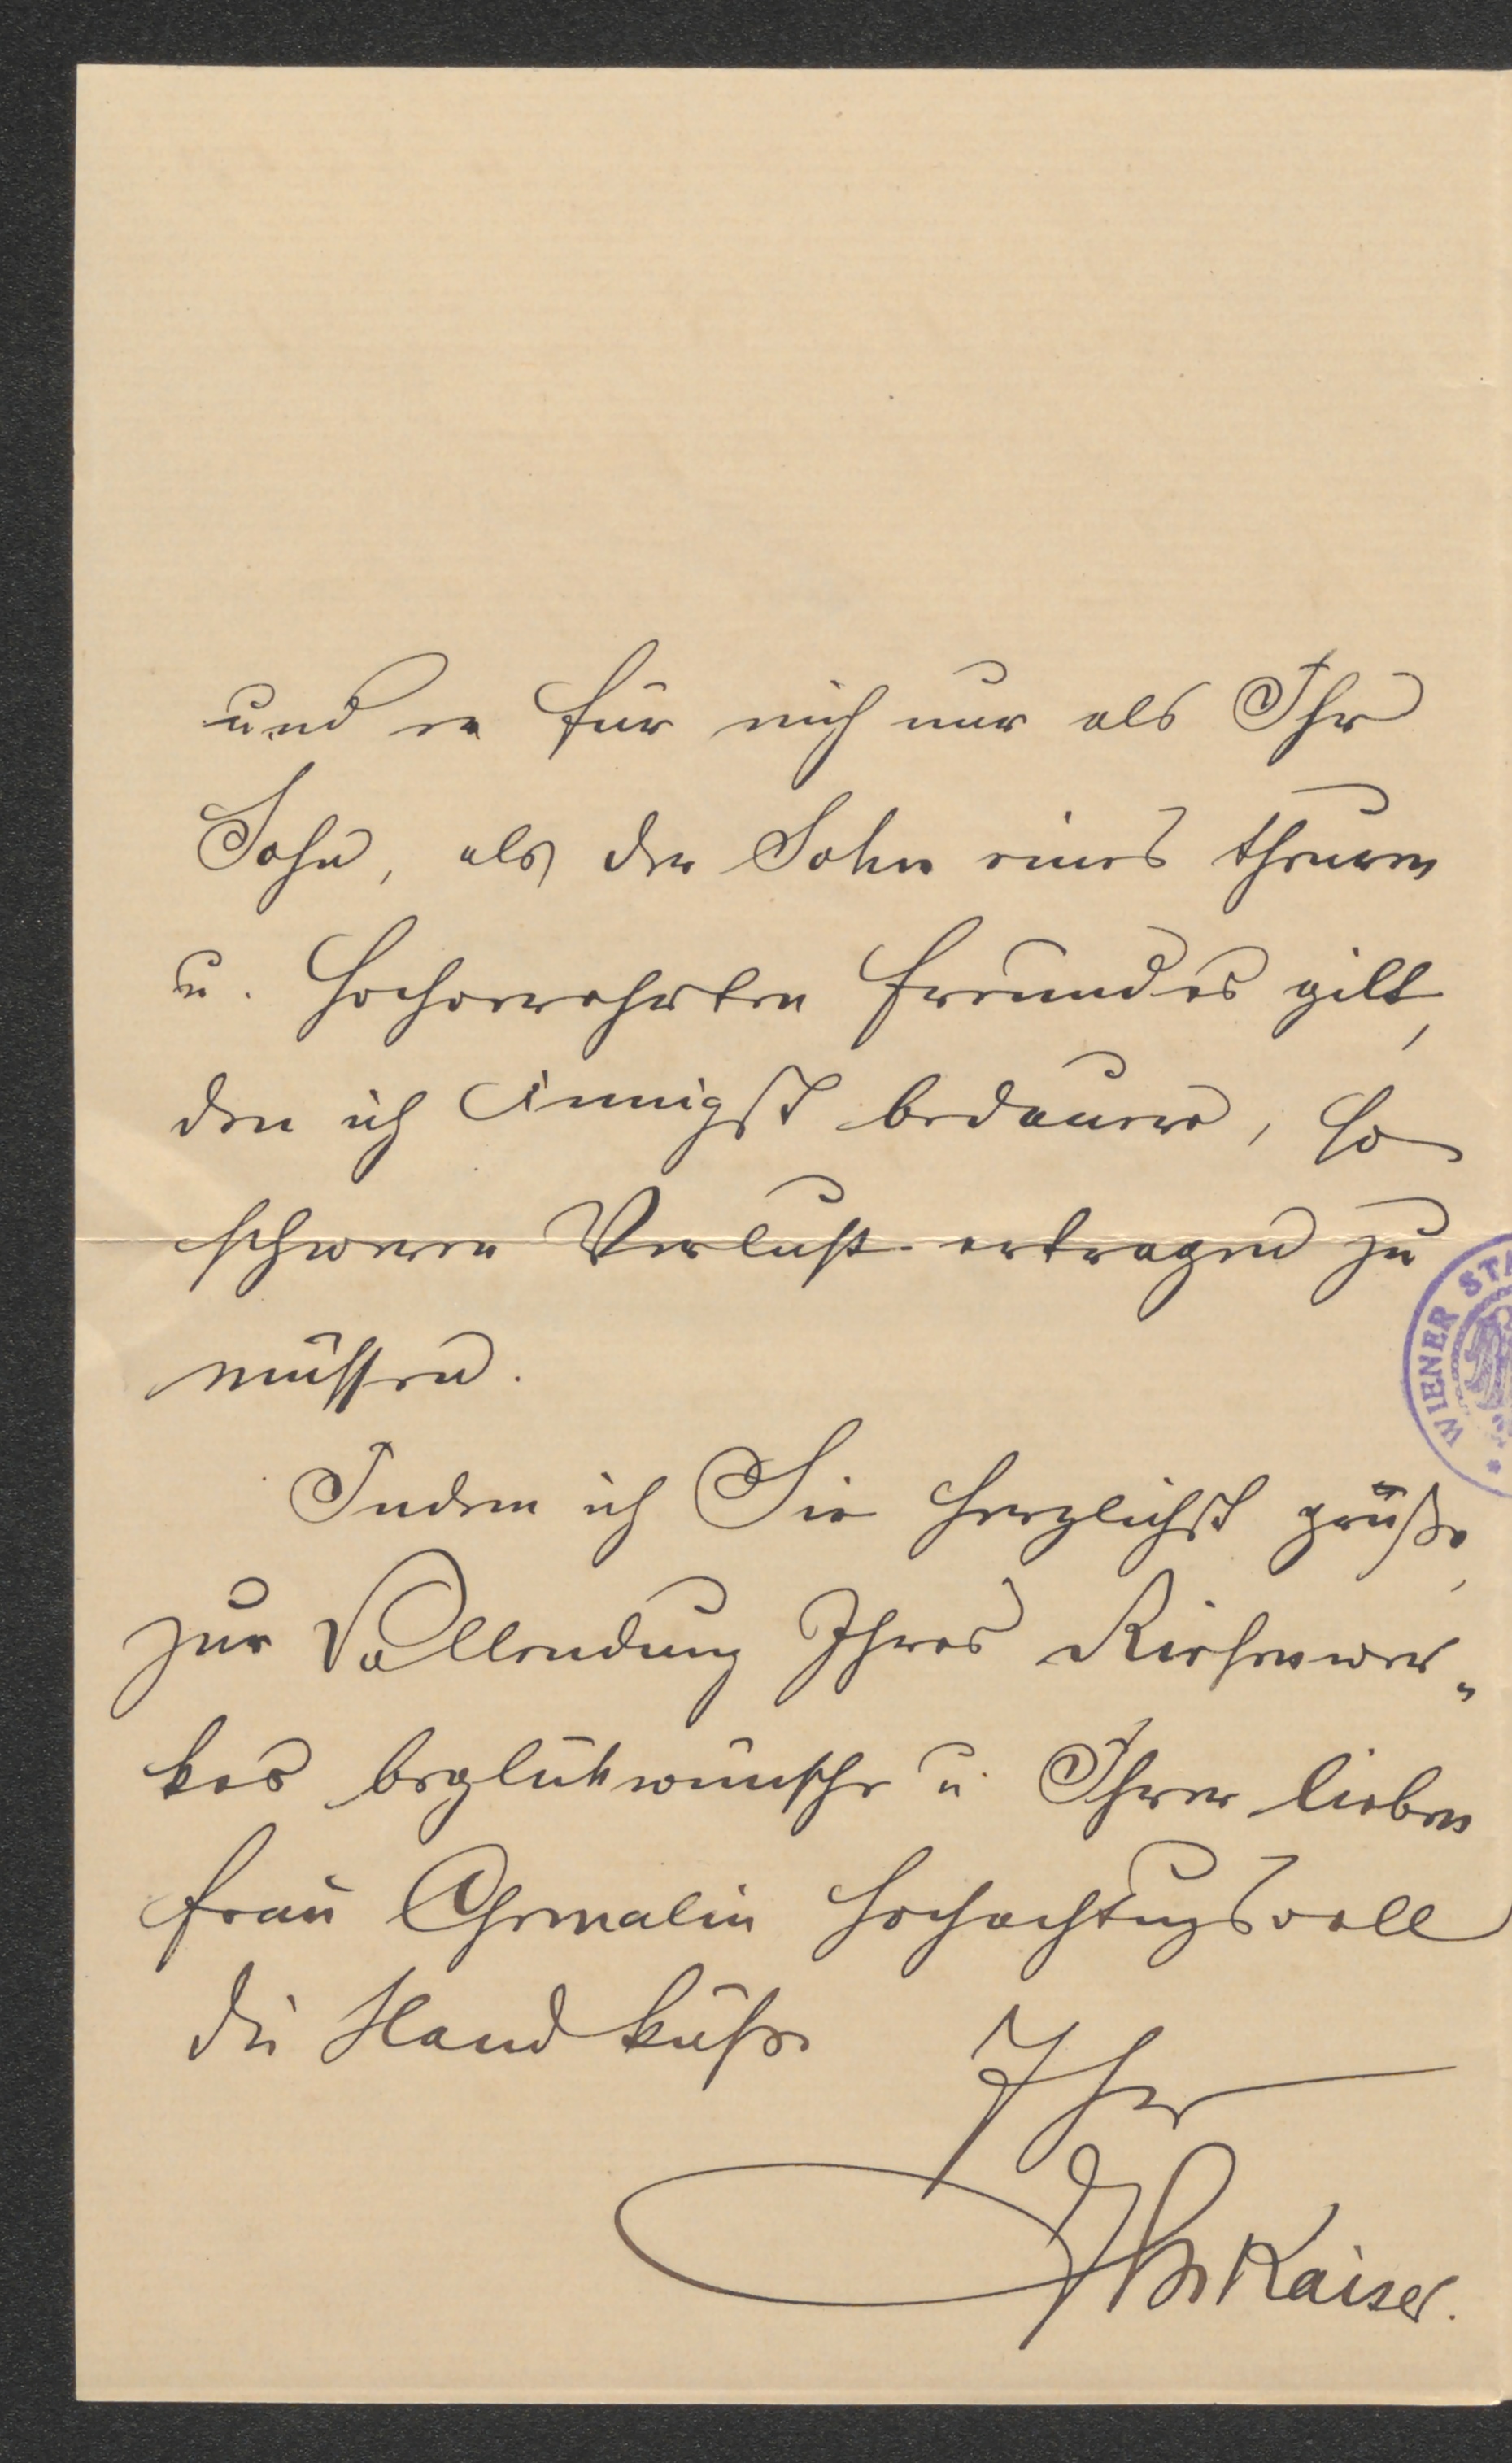 und er für mich nur als Ihr
Sohn, als der Sohn eines theuren
u. hochverehrten Freundes gilt,
den ich innigst bedauere, so
schweren Verlust ertragen zu
müssen.
Indem ich Sie herzlichst grüße,
zur Vollendung Ihres Riesenwer„
kes beglückwünsche u. Ihrer lieben
Frau Gemalin hochachtungsvoll
die Hand küsse
Ihr
Kaiser.
WIENER